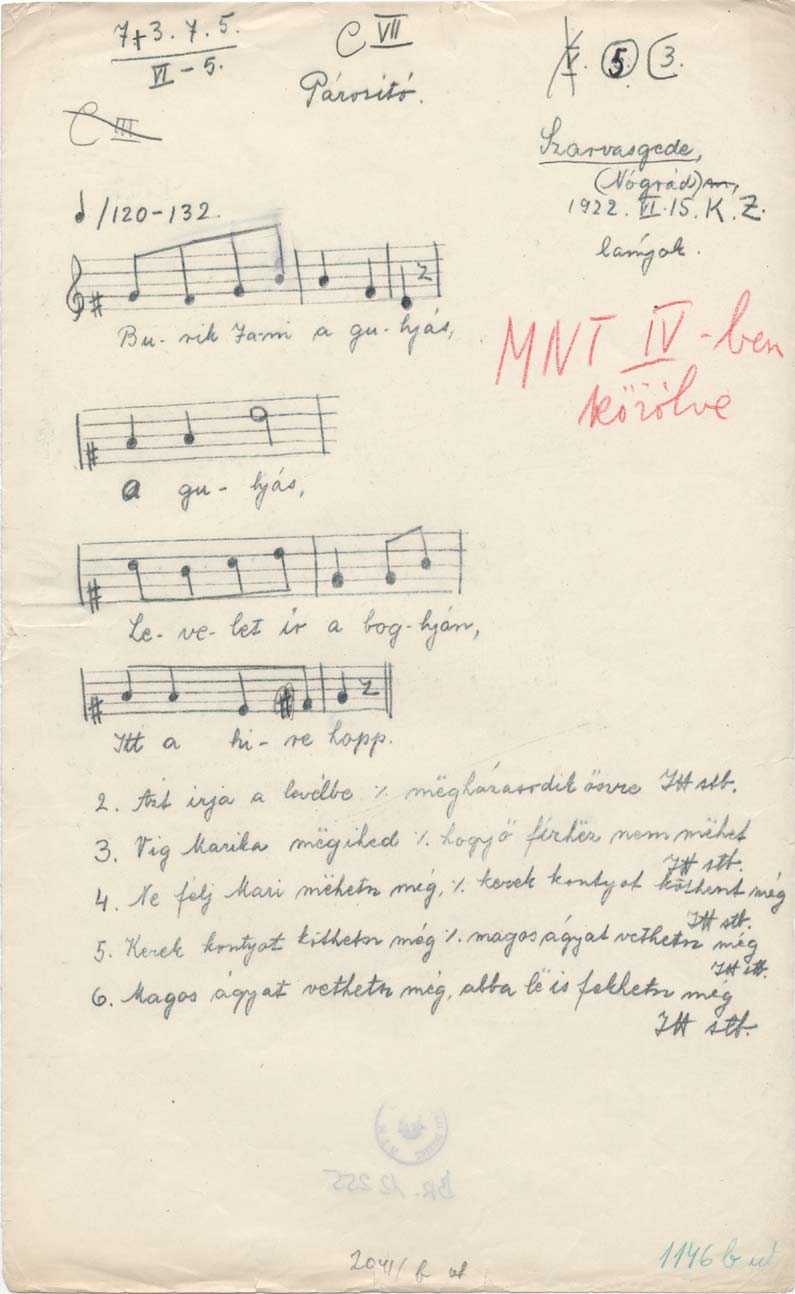 7+3. 7. 5.
VI - 5.
C VII
Párosító.
V. 5. 3.
C III
Szarvasgede,
(Nógrád)
1922. VI. 15. K. Z.
lányok.
/120-132.
Bu- rik Ja-ni a gu- lyás,
MNT IV-ben
közölve
a gu- lyás,
Le- ve- let ír a bog- lyán,
Itt a hi- re hopp.
2. Azt irja a levélbe ·/· mëgházasodik őszre Itt stb.
3. Vig Marika mëgihed ·/· hogy ő férhëz nem mëhet
Itt stb.
4. Ne félj Mari mëhetsz még, ·/· kerek kontyot köthetsz még
Itt stb.
5. Kerek kontyot köthetsz még ·/· magos ágyat vethetsz még
Itt stb.
6. Magos ágyat vethetsz még, abba lë is fekhetsz még
Itt stb.
BR. 12255
2041/b
1146 b